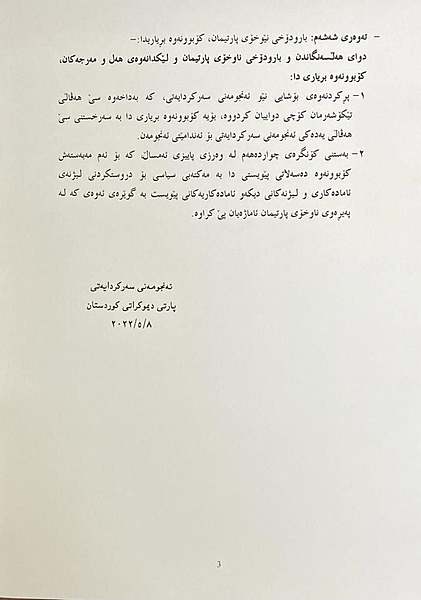 - تەوەری شەشەم: بارودۆخی نێوخۆی پارتیمان، کۆبوونەوە بریاریدا:-
دوای هەڵسەنگاندن و بارودۆخی ناوخۆی پارتیمان و لێکدانەوەی هەل و مەرجەکان،
کۆبوونەوە بریاری دا:
١- پڕکردنەوەی بۆشایی نێو ئەنجومەنی سەرکردایەتی، کە بەداخەوە سێ هەڤاڵی
تێکۆشەرمان کۆچی دواییان کردووە، بۆیە کۆبوونەوە بریاری دا بە سەرخستنی سێ
هەڤاڵی یەدەکی ئەنجومەنی سەرکردایەتی بۆ ئەندامێتی ئەنجومەن.
٢- بەستنی کۆنگرەی چواردەهەم لە وەرزی پاییزی ئەمساڵ، کە بۆ ئەم مەبەستەش
کۆبوونەوە دەسەلاتی پێویستی دا بە مەکتەبی سیاسی بۆ دروستکردنی لیژنەی
ئامادەکاری و لیژنەکانی دیکەو ئامادەکاریەکانی پێویست بە گوێرەی ئەوەی کە لە
پەیرەوی ناوخۆی پارتیمان ئاماژەیان پێ کراوە.
ئەنجومەنی سەرکردایەتی
پارتی دیموکراتی کوردستان
٢٠٢٢/٥/٨
3